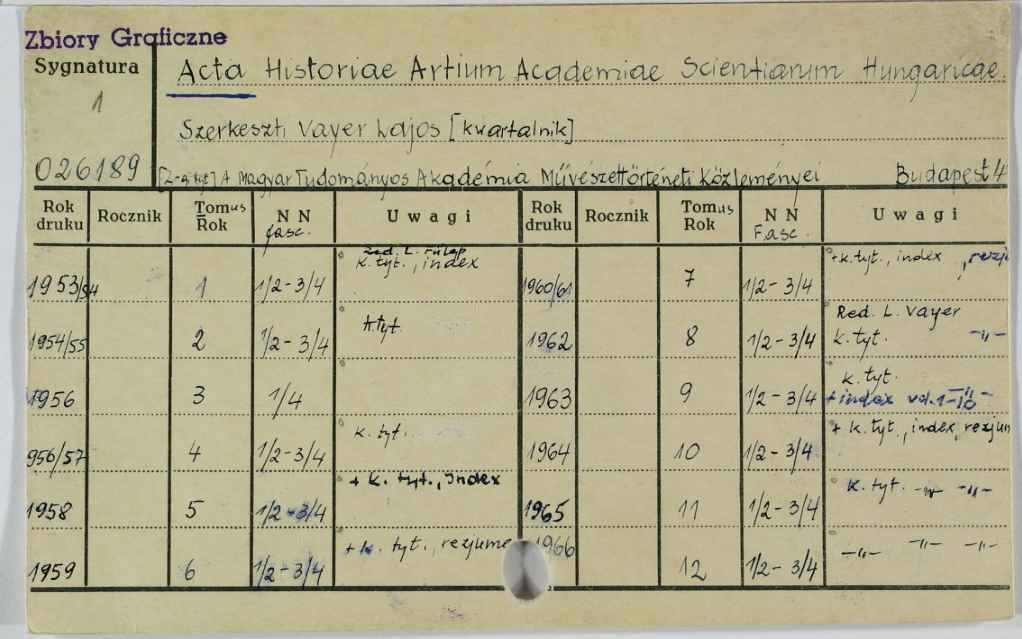 Zbiory Graficzne
Sygnatura
1
026189
Acta Historiae Artium Academiae Scientiarum Hungaricae.
Szerkeszti Vayer Lajos [kwartalnik]
A Magyar Tudományos Akadémia Művészettörténeti Közleményei Budapest 4
Rok druku Rocznik Tomus Rok NN fasc. Uwagi Rok druku Rocznik Tomus Rok NN Fasc. Uwagi
1953/54 1 1/2-3/4 Red. L. Fülep k. tyt., index 1960/61 7 1/2-3/4 +k. tyt., index
1954/55 2 1/2-3/4 k. tyt. 1962 8 1/2-3/4 Red. L. Vayer k. tyt. -"-
1956 3 1/4 1963 9 1/2-3/4 k. tyt. -"- + index vol. 1-10
956/57 4 1/2-3/4 k. tyt. 1964 10 1/2-3/4 + k. tyt., index, rezjum
1958 5 1/2-3/4 + k. tyt., index 1965 11 1/2-3/4 k. tyt. -"- -"-
1959 6 1/2-3/4 + k. tyt., rezjume 1966 12 1/2-3/4 -"- -"- -"-